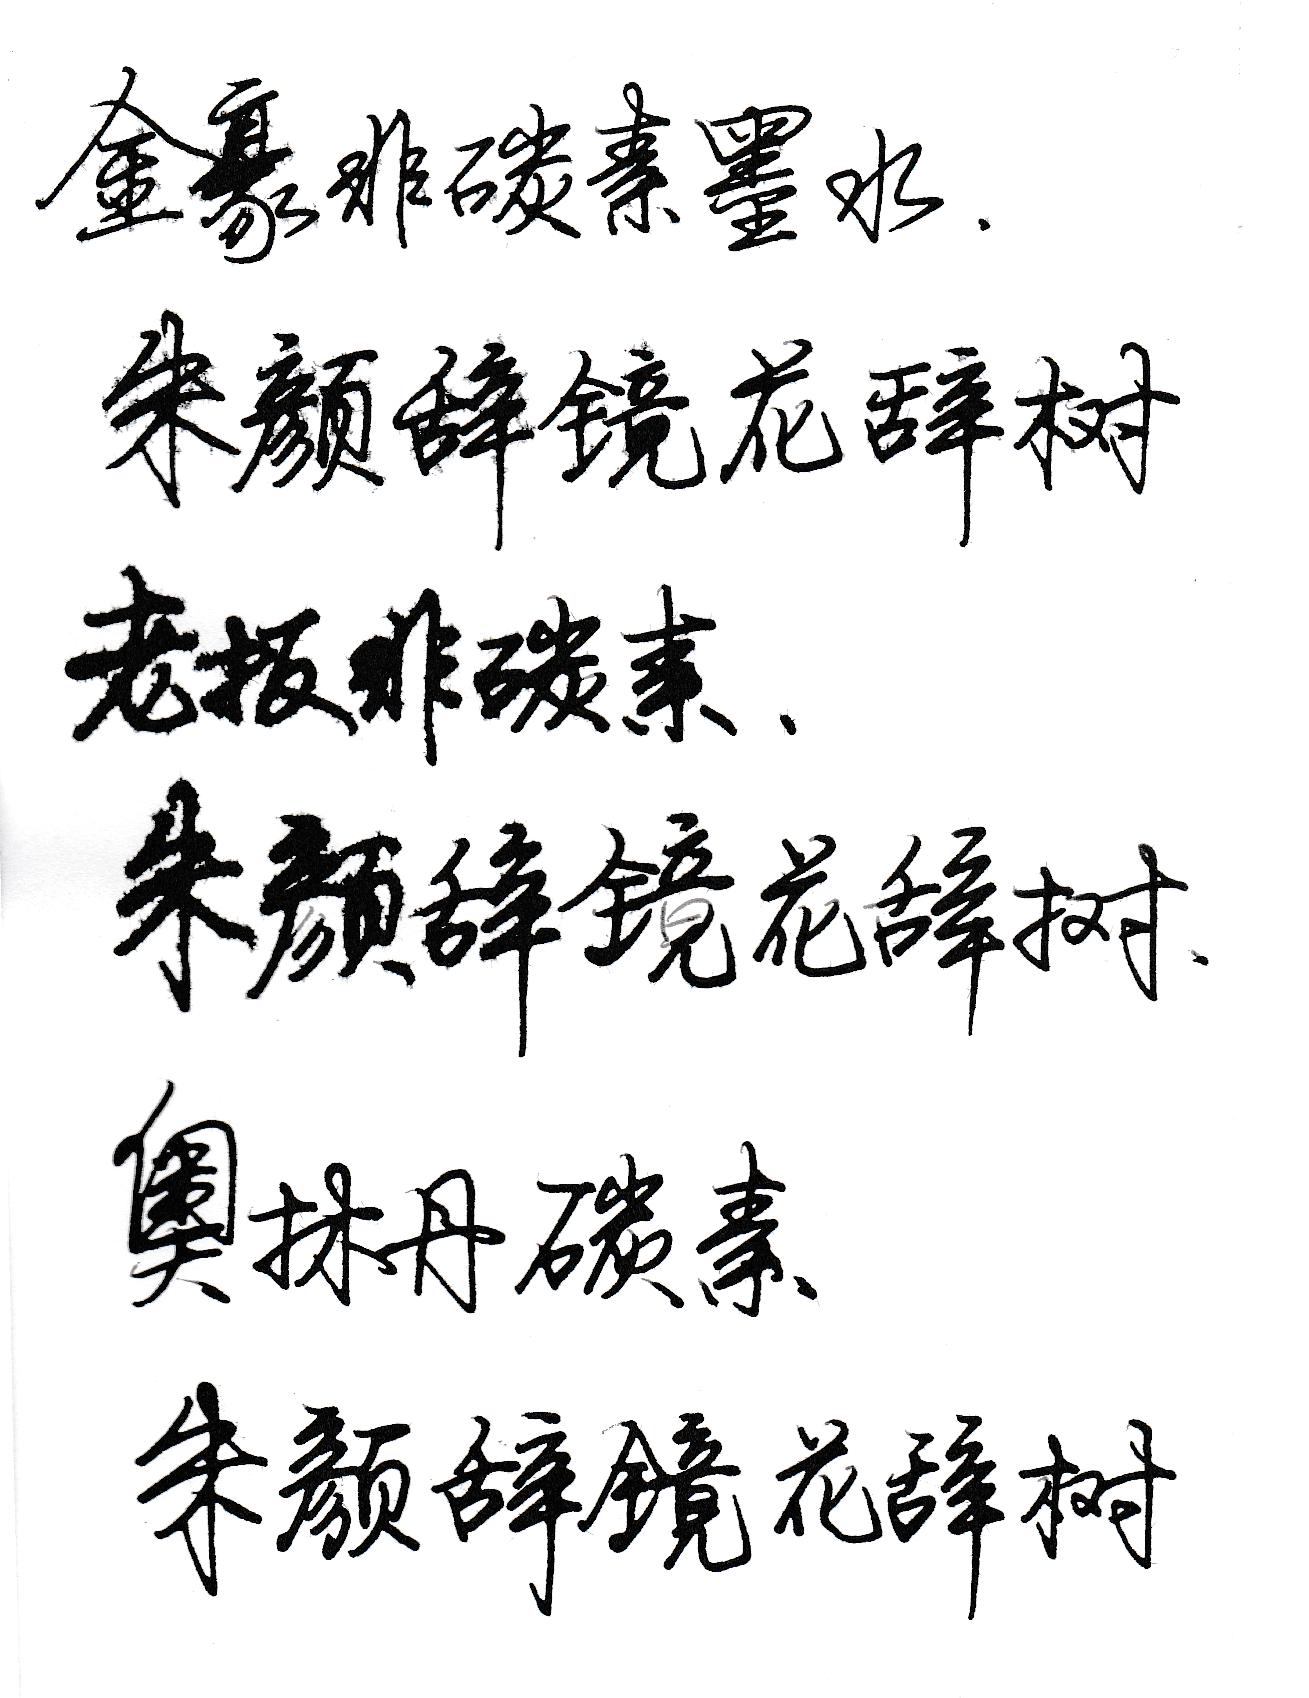 金豪非碳素墨水.
朱颜辞镜花辞树
老板非碳素、
朱颜辞镜花辞树、
奥林丹碳素
朱颜辞镜花辞树